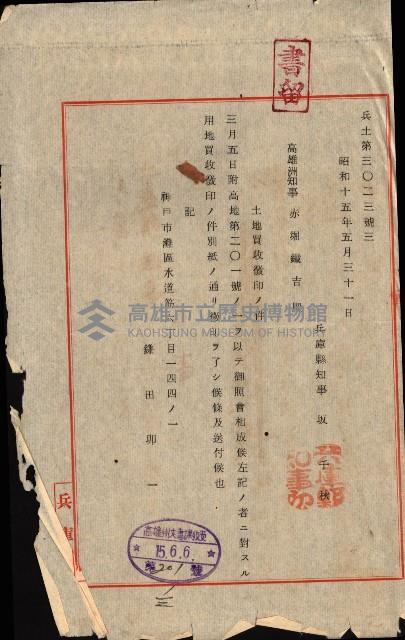 書留
兵土第三〇二三號三
昭和十五年五月三十一日
兵庫縣知事 坂 千秋
高雄洲知事 赤堀鐵吉殿
土地買收徵印ノ件
三月五日附高地第二〇一號ノ一ヲ以テ御照會相成候左記ノ者ニ對スル
用地買收徵印ノ件別紙ノ通リ徵印ヲ了シ候條及送付候也
記
神戸市灘區水道筋 丁目一四四ノ一
鎌田卯一
兵庫縣知事印
高雄州
15.6.6.
第201號
兵庫
高雄市立歷史博物館
KAOHSIUNG MUSEUM OF HISTORY